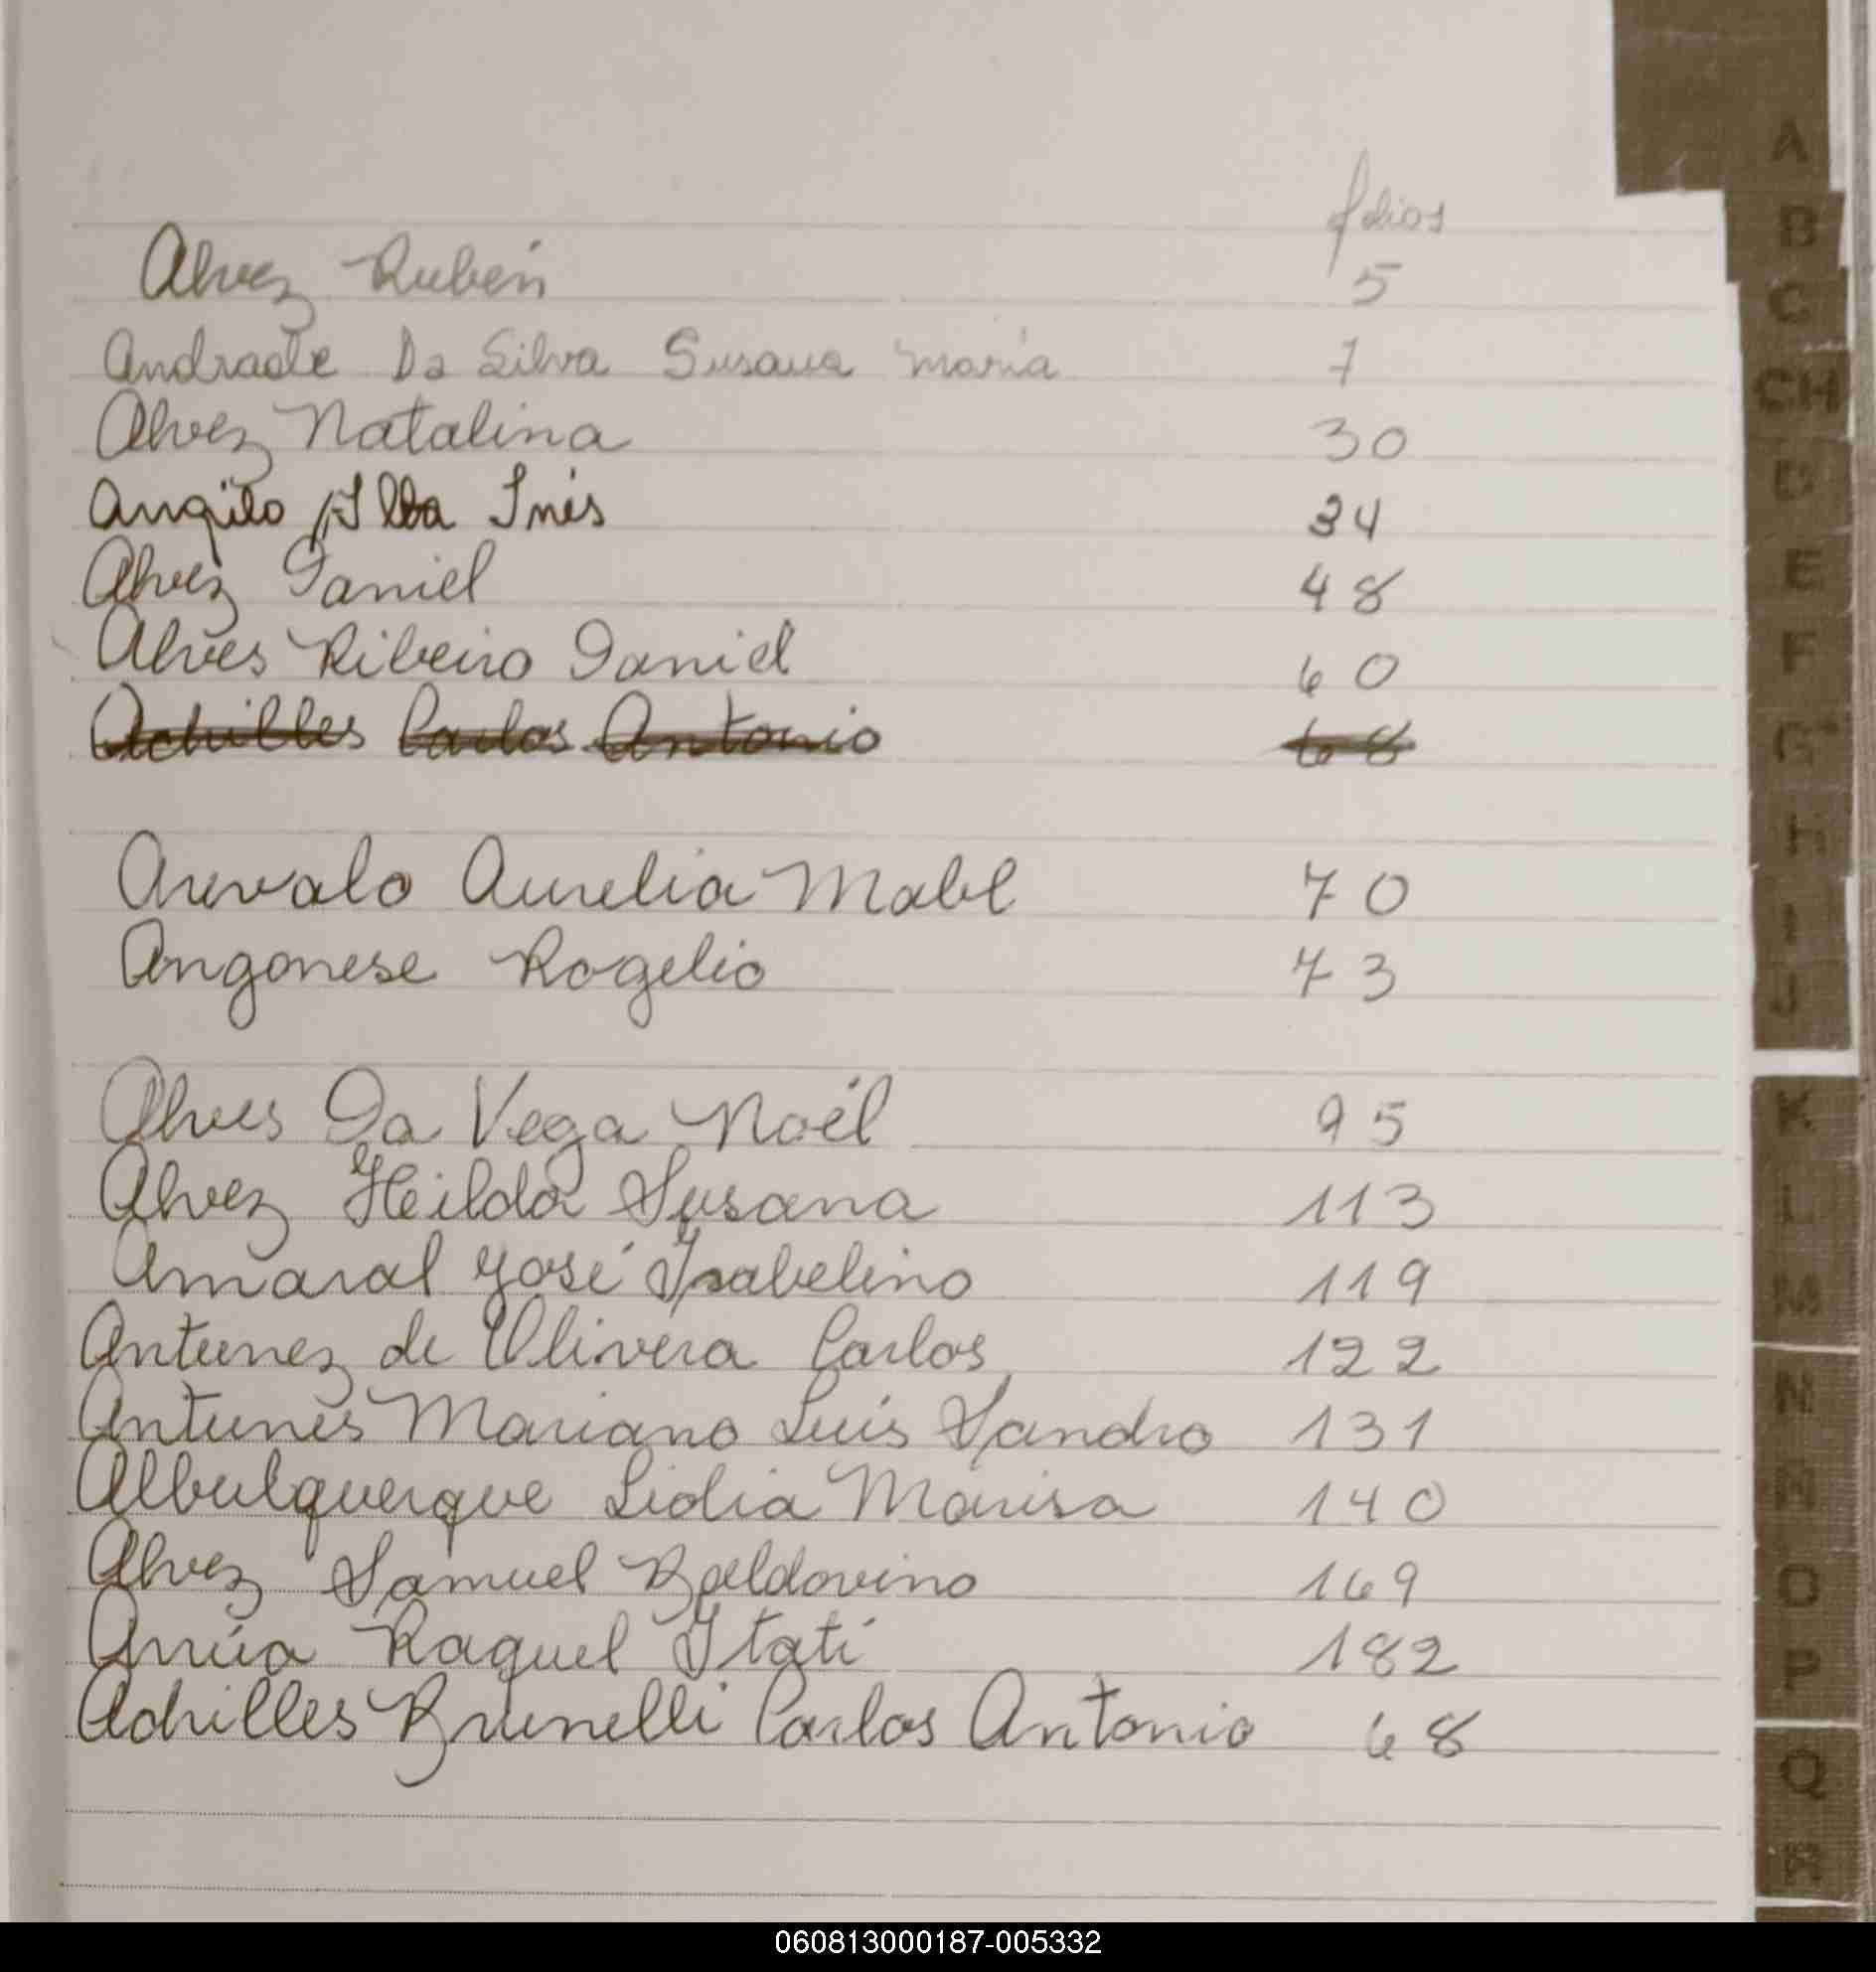 folios
Alvez Rubén 5
Andrade Da Silva Susana María 7
Alvez Natalina 30
Alba Inés 34
Alvez Daniel 48
Alves Ribeiro Daniel 60
Achilles Carlos Antonio 68
Arevalo Aurelia Mabel 70
Angonese Rogelio 73
Alves Da Vega Noél 95
Alvez Heilda Susana 113
Amaral José Ysabelino 119
Antunez de Olivera Carlos 122
Antunes Mariano Luis Sandro 131
Albulquerque Lidia Marisa 140
Alvez Samuel Baldovino 169
Raquel Itatí 182
Achilles Brunelli Carlos Antonio 68
A
B
C
CH
D
E
F
G
H
I
J
K
L
M
N
Ñ
O
P
Q
R
060813000187-005332